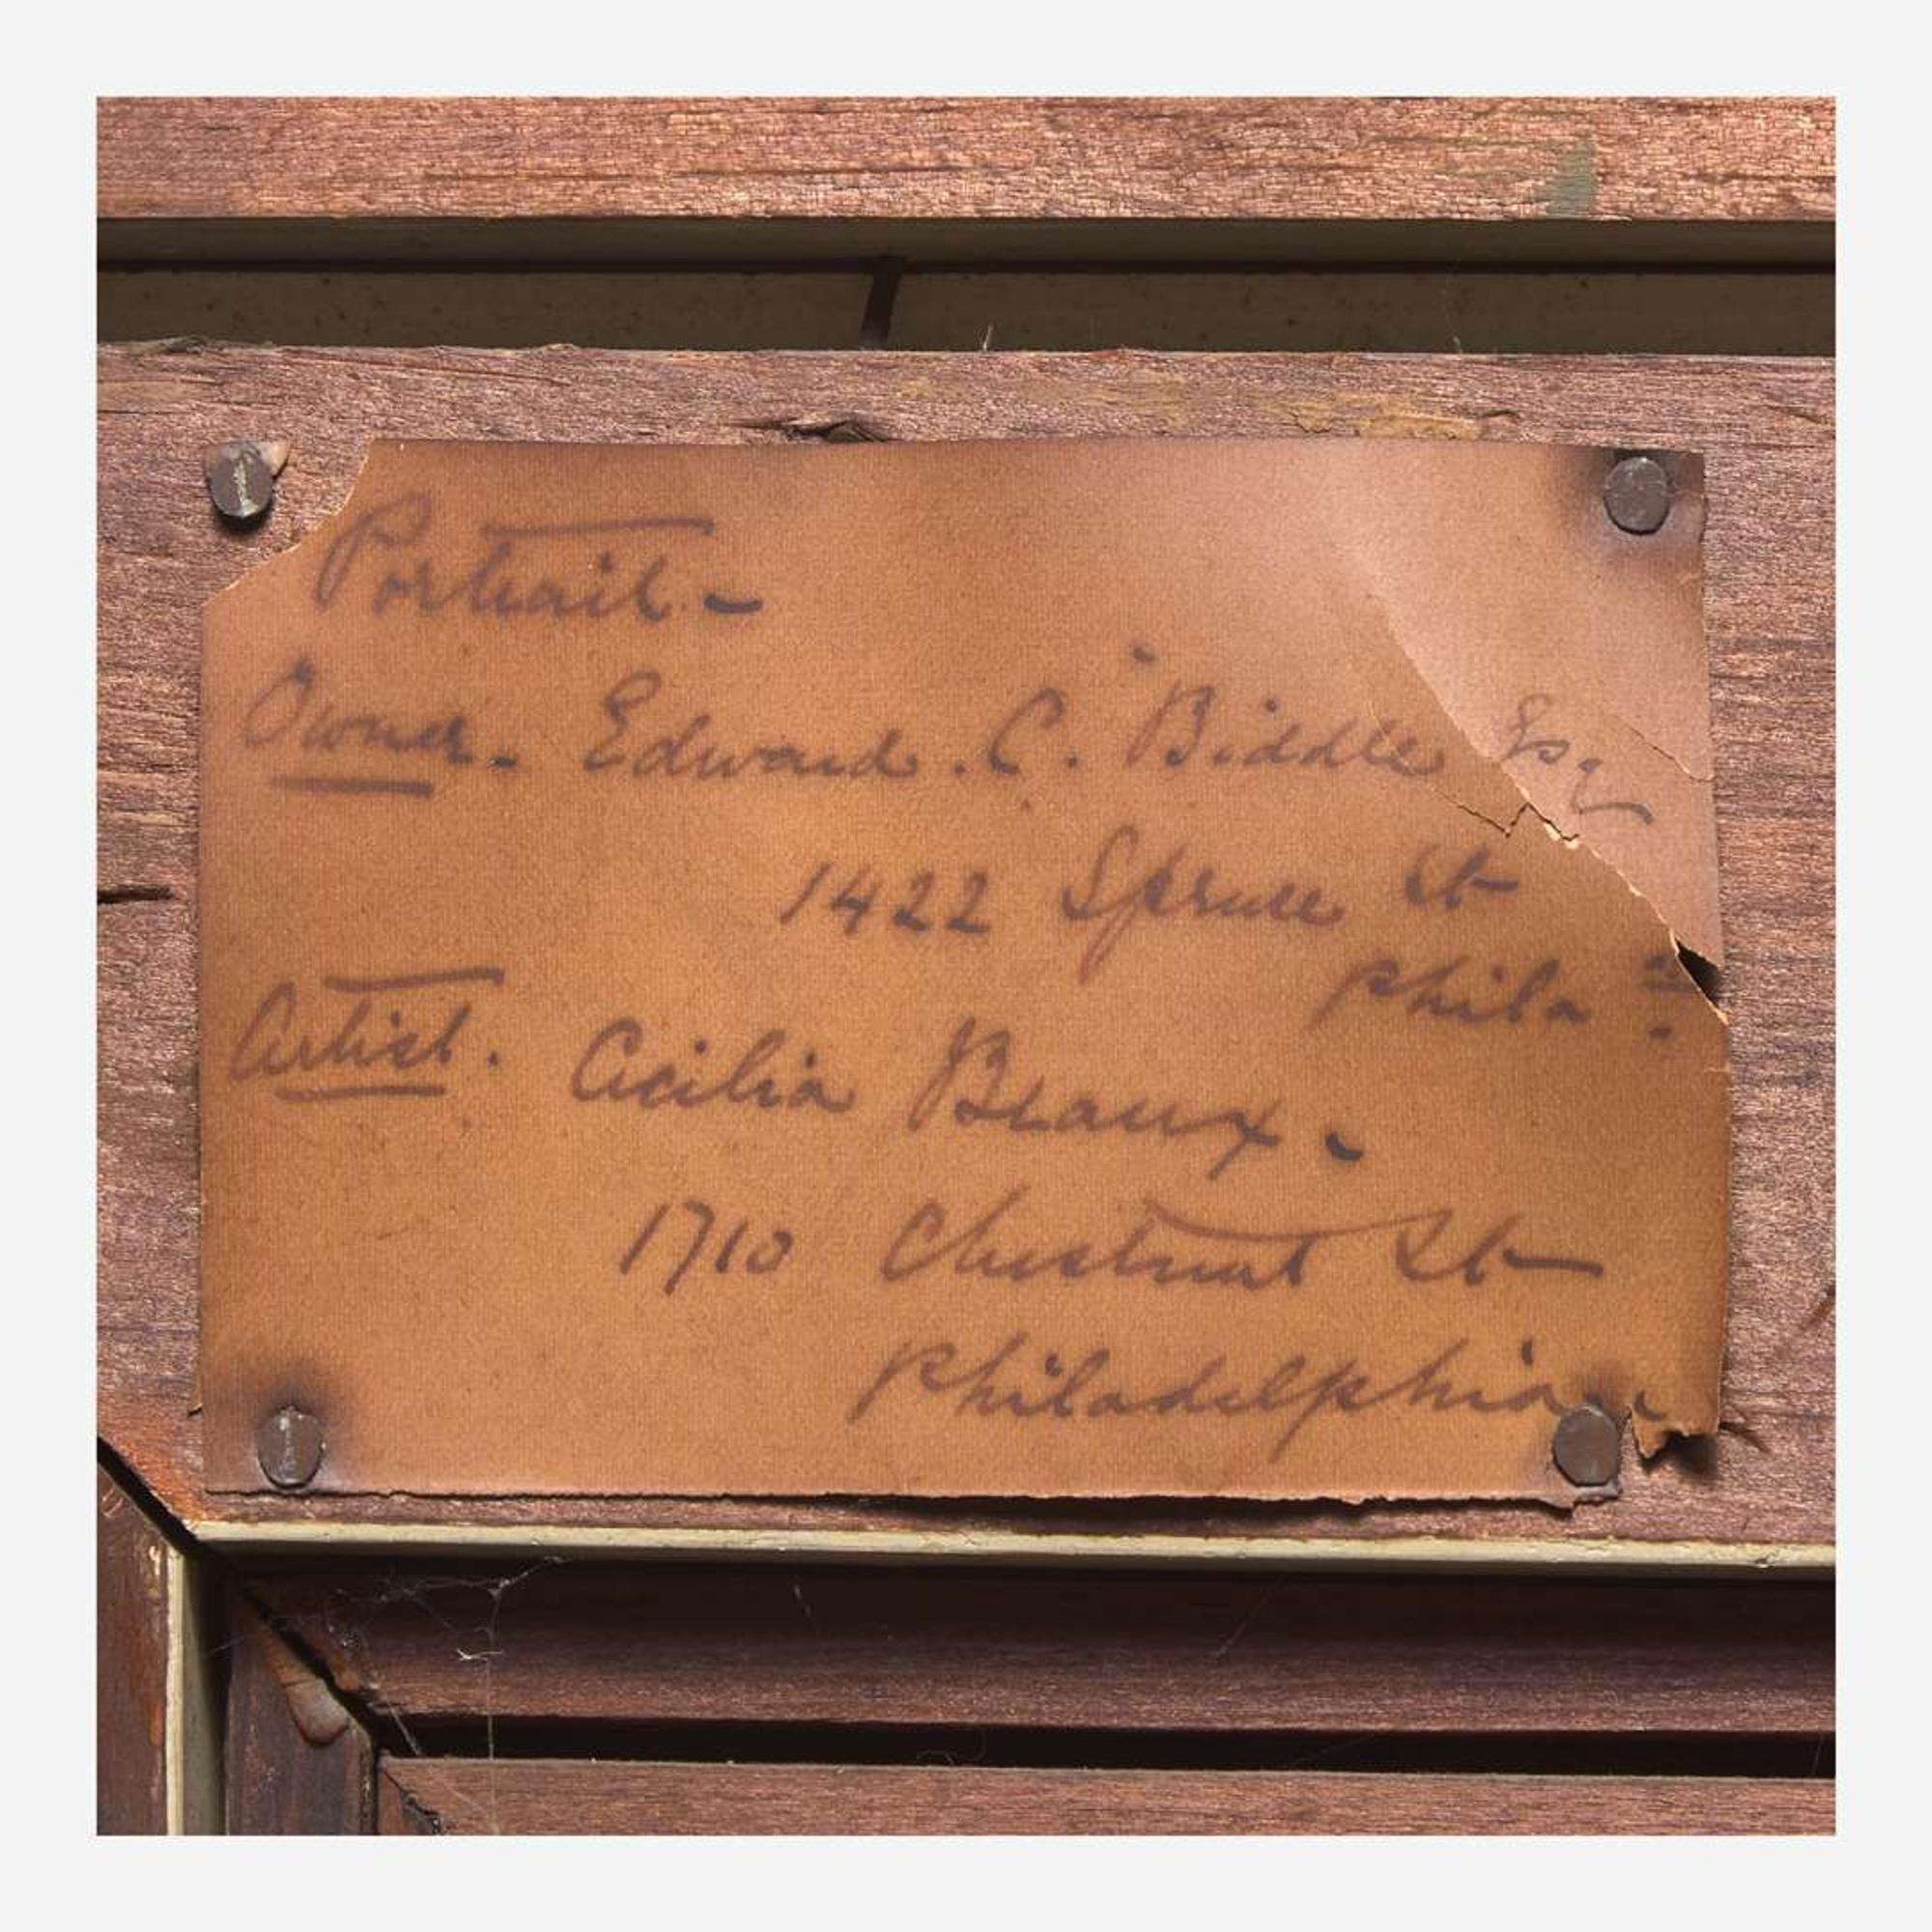 Portrait. -
Owner. Edward. C. Biddle Esq
1422 Spruce St
Phila a.
Artist. Cecilia Beaux -
1710 Chestnut St
Philadelphia